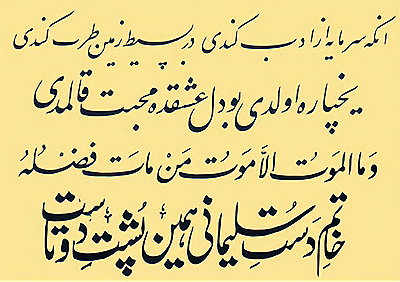 انکه سرمایه از ادب کندی در بسیط زمین طرب کندی
یخپاره اولدی بو دل عشقده محبت قالمدی
وَما الموَتُ الاَّ مَوتُ مَنْ ماتَ فضلُهُ
خاتمِ دَستِ سلیمانی همین پُشتِ دوتاست